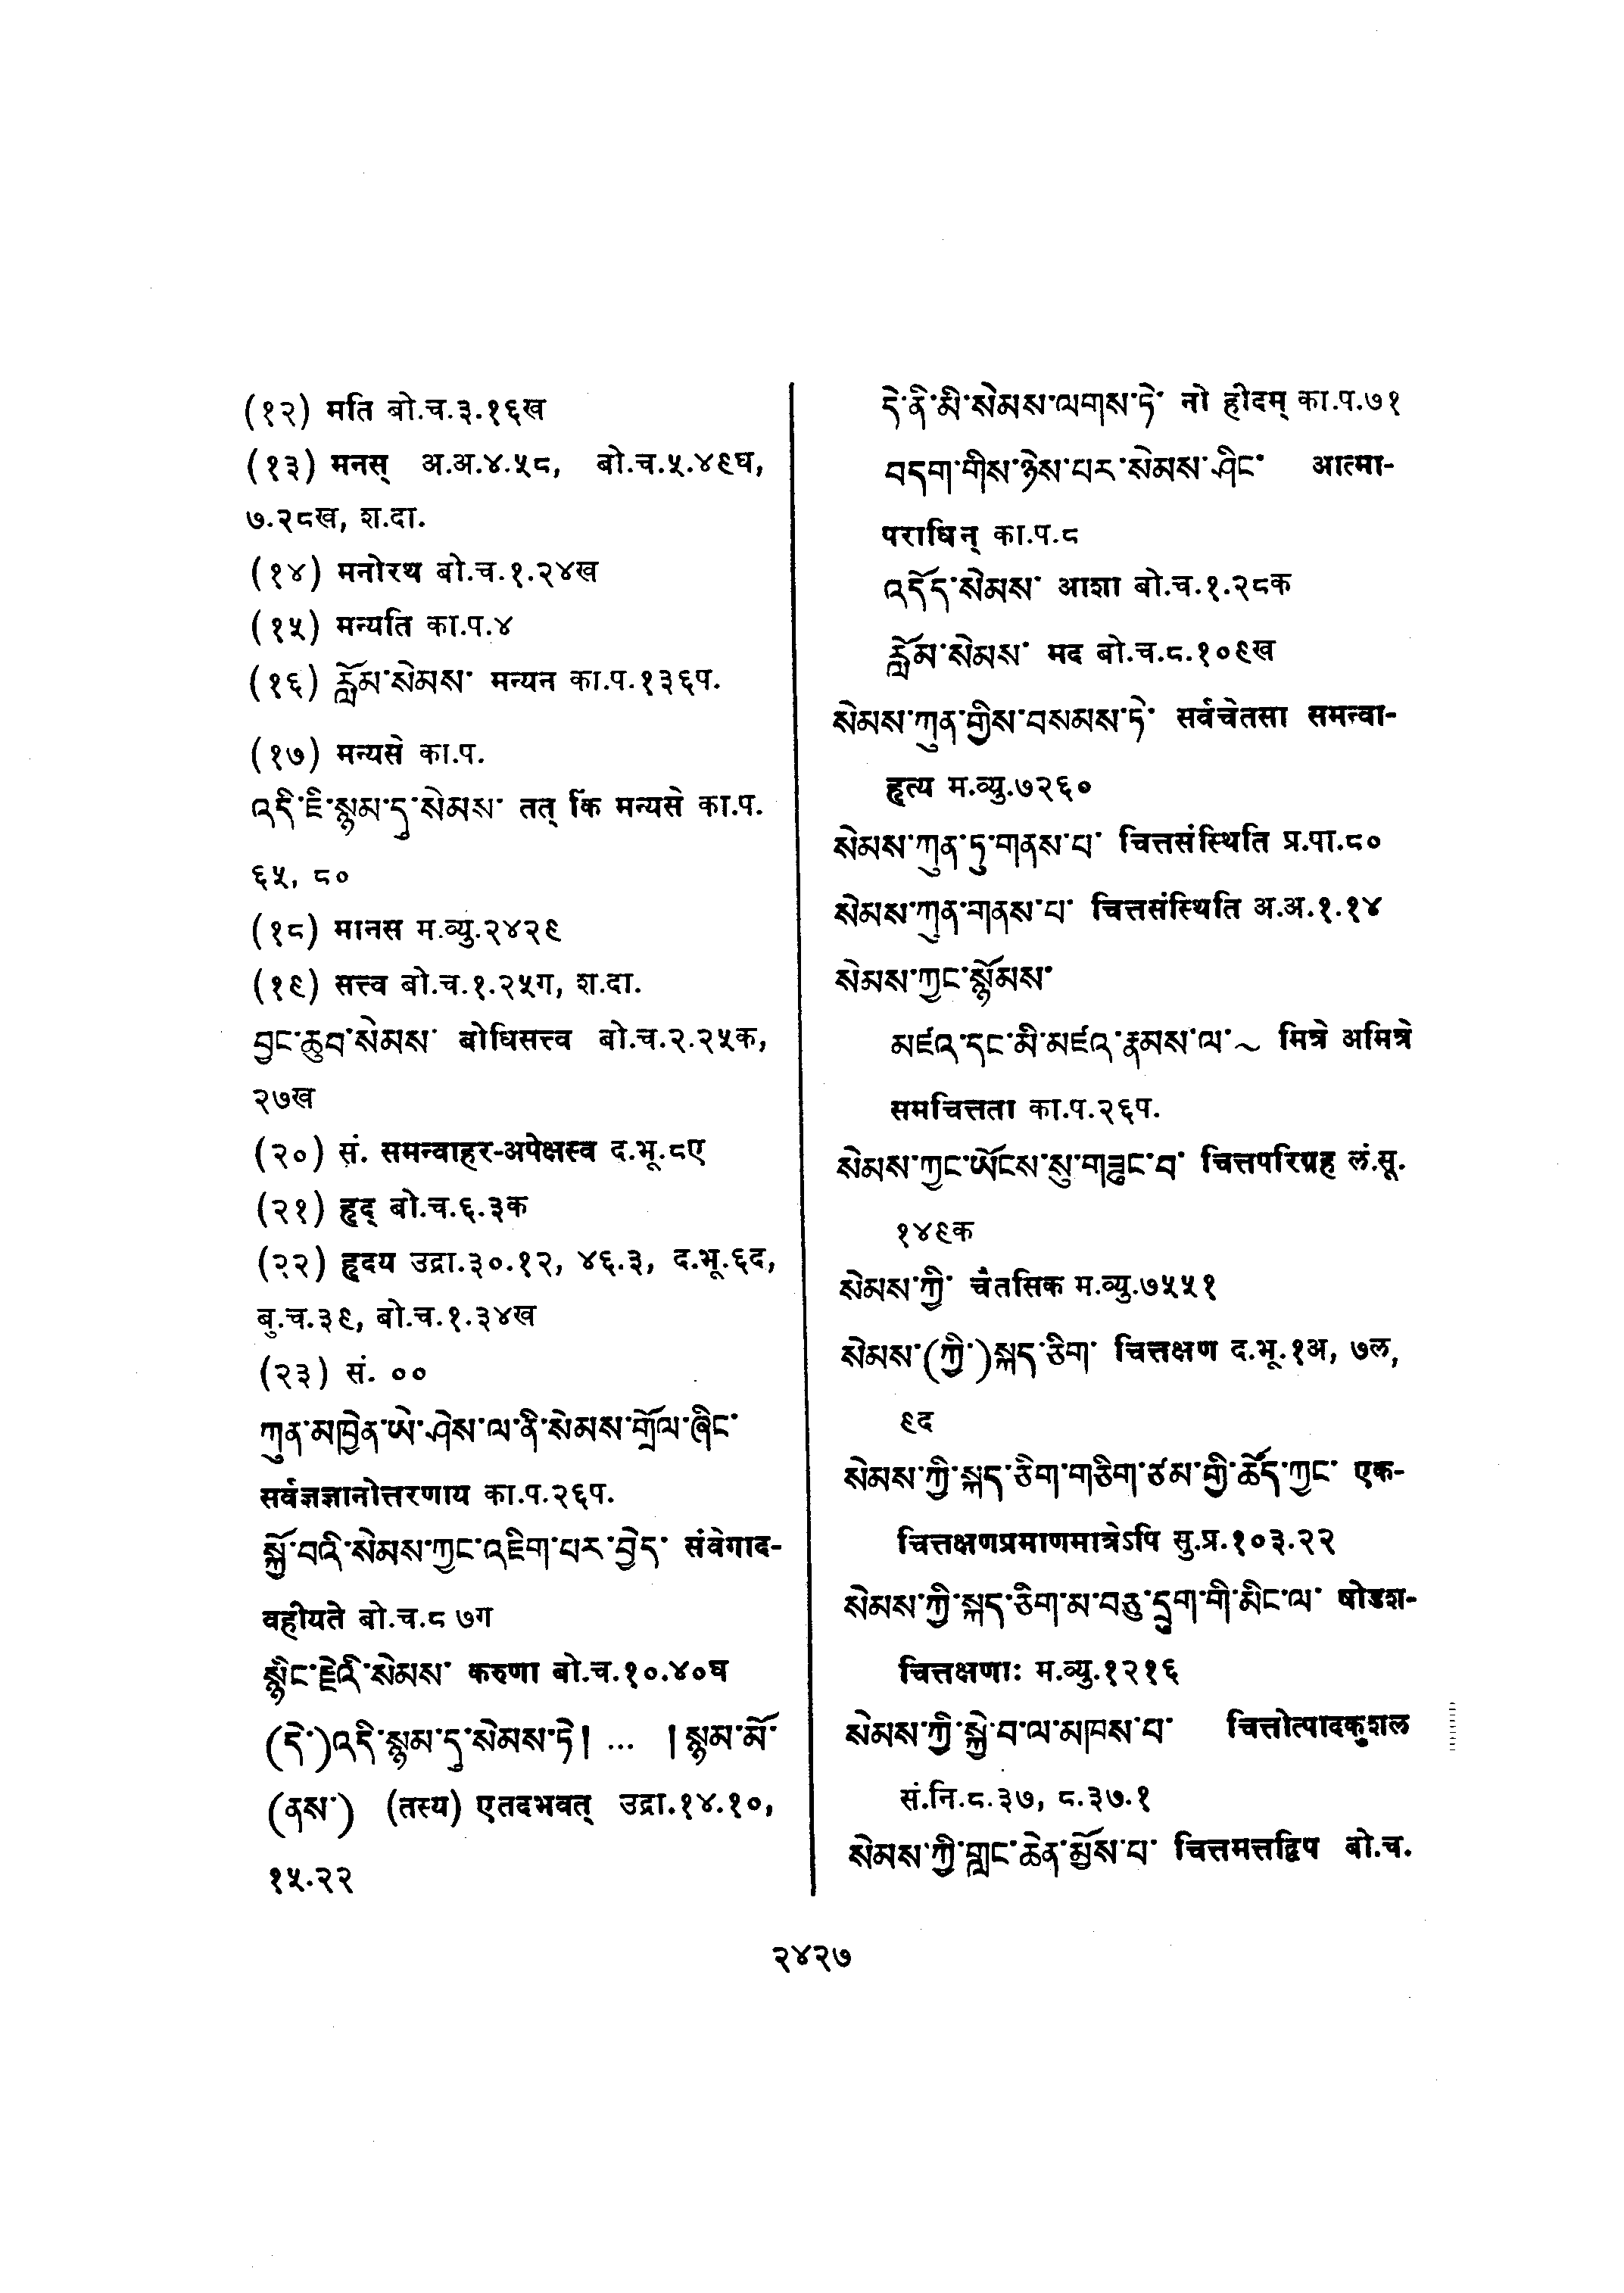 (१२) मति बो.च.३.१६ख
(१३) मनस् अ.अ.४.५८, बो.च.५.४९घ,
७.२८ख, श.दा.
(१४) मनोरथ बो.च.१.२४ख
(१५) मन्यति का.प.४
(१६) རློམ་སེམས་ मन्यन का.प.१३६प.
(१७) मन्यसे का.प.
འདི་ཇི་སྙམ་དུ་སེམས་ तत् किं मन्यसे का.प.
६५, ८०
(१८) मानस म.व्यु.२४२९
(१९) सत्त्व बो.च.१.२५ग, श.दा.
བྱང་ཆུབ་སེམས་ बोधिसत्त्व बो.च.२.२५क,
२७ख
(२०) सं. समन्वाहर-अपेक्षस्व द.भू.८ए
(२१) हृद् बो.च.६.३क
(२२) हृदय उद्रा.३०.१२, ४६.३, द.भू.६द,
बु.च.३९, बो.च.१.३४ख
(२३) सं. ००
ཀུན་མཁྱེན་ཡེ་ཤེས་ལ་ནི་སེམས་གྲོལ་ཞིང་
सर्वज्ञज्ञानोत्तरणाय का.प.२६प.
སྐྱོ་བའི་སེམས་ཀྱང་འཇིག་པར་བྱེད་ संवेगाद-
वहीयते बो.च.८ ७ग
སྙིང་རྗེའི་སེམས་ करुणा बो.च.१०.४०घ
(དེ་)འདི་སྙམ་དུ་སེམས་ཏེ། ... །སྙམ་མོ་
(ནས་) (तस्य) एतदभवत् उद्रा.१४.१०,
१५.२२
དེ་ནི་མི་སེམས་ལགས་ཏེ་ नो हीदम् का.प.७१
བདག་གིས་ཉེས་པར་སེམས་ཤིང་ आत्मा-
पराधिन् का.प.८
འདོད་སེམས་ आशा बो.च.१.२८क
རློམ་སེམས་ मद बो.च.८.१०९ख
སེམས་ཀུན་གྱིས་བསམས་ཏེ་ सर्वचेतसा समन्वा-
हृत्य म.व्यु.७२६०
སེམས་ཀུན་ཏུ་གནས་པ་ चित्तसंस्थिति प्र.पा.८०
སེམས་ཀུན་གནས་པ་ चित्तसंस्थिति अ.अ.१.१४
སེམས་ཀྱང་སྙོམས་
མཛའ་དང་མི་མཛའ་རྣམས་ལ་~ मित्रे अमित्रे
समचित्तता का.प.२६प.
སེམས་ཀྱང་ཡོངས་སུ་གཟུང་བ་ चित्तपरिग्रह लं.सू.
१४९क
སེམས་ཀྱི་ चैतसिक म.व्यु.७५५१
སེམས་(ཀྱི་)སྐད་ཅིག་ चित्तक्षण द.भू.१अ, ७ल,
९द
སེམས་ཀྱི་སྐད་ཅིག་གཅིག་ཙམ་གྱི་ཚོད་ཀྱང་ एक-
चित्तक्षणप्रमाणमात्रेऽपि सु.प्र.१०३.२२
སེམས་ཀྱི་སྐད་ཅིག་མ་བཅུ་དྲུག་གི་མིང་ལ་ षोडश-
चित्तक्षणाः म.व्यु.१२१६
སེམས་ཀྱི་སྐྱེ་བ་ལ་མཁས་པ་ चित्तोत्पादकुशल
सं.नि.८.३७, ८.३७.१
སེམས་ཀྱི་གླང་ཆེན་མྱོས་པ་ चित्तमत्तद्विप बो.च.
२४२७